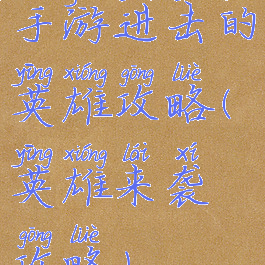 手游进击的
yīng xióng gōng lüè
英雄攻略(
yīng xióng lái xí
英雄来袭
gōng lüè
攻略)